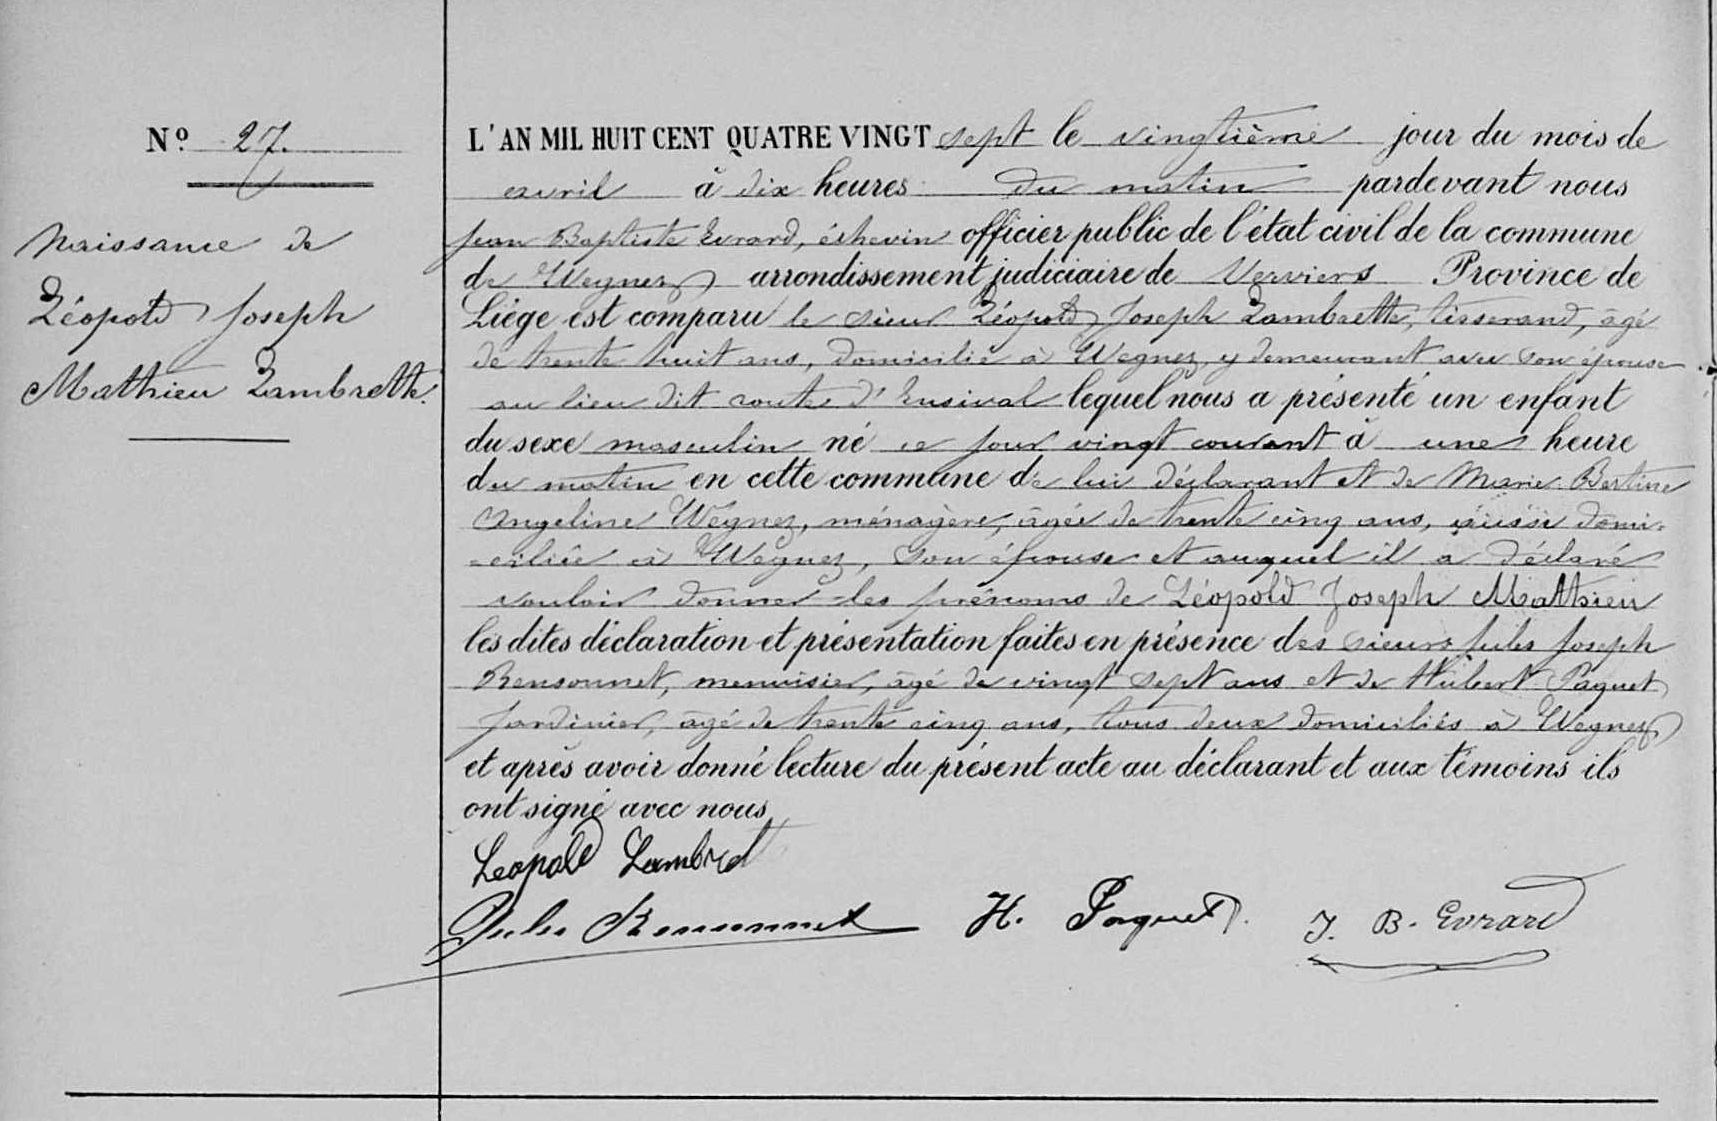 N° 27.
Naissance de
Léopold Joseph
Mathieu Lambrette.
L'AN MIL HUIT CENT QUATRE VINGT sept le vingtième jour du mois de
avril à dix heures du matin pardevant nous
Jean Baptiste Evrard, échevin officier public de l'état civil de la commune
de Wegnez arrondissement judiciaire de Verviers Province de
Liège est comparu le sieur Léopold Joseph Lambrette, tisserand, âgé
de trente huit ans, domicilié à Wegnez, y demeurant avec son épouse
au lieu dit route d'Ensival lequel nous a présenté un enfant
du sexe masculin né ce jour vingt courant à une heure
du matin en cette commune de lui déclarant et de Marie Bertine
Angeline Wegnez, ménagère, âgée de trente cinq ans, aussi domi-
-ciliée à Wegnez, son épouse et auquel il a déclaré
vouloir donner les prénoms de Léopold Joseph Mathieu
les dites déclaration et présentation faites en présence des sieurs Jules Joseph
Rensonnet, menuisier, âgé de vingt sept ans et de Hubert Paquet
Jardinier, âgé de trente cinq ans, tous deux domiciliés à Wegnez
et après avoir donné lecture du présent acte au déclarant et aux témoins ils
ont signé avec nous
Leopold Lambrett
Jules Rensonnet H. Paquet. J. B. Evrard